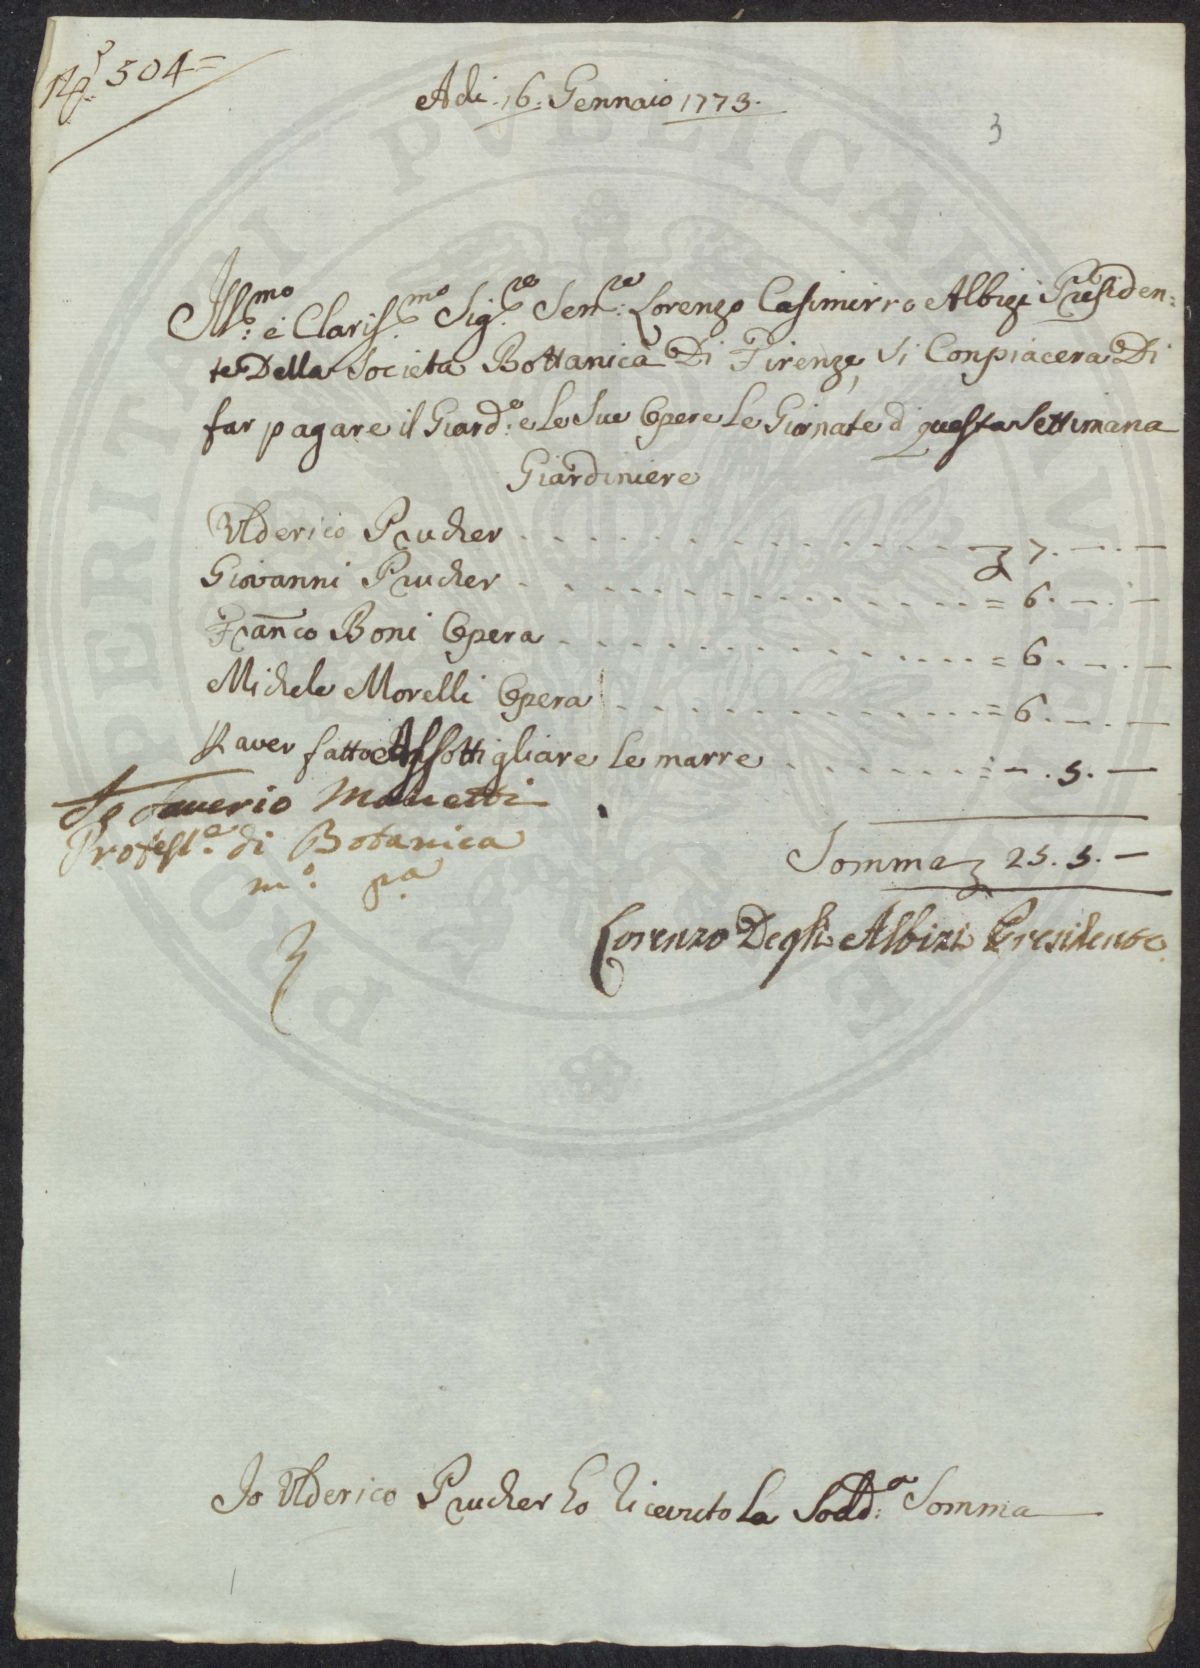 504=
Adi 16. Gennaio 1773.
3
Ill.mo e Claris.mo Sig.re Sen.re Lorenzo Casimirro Albizi Presiden:
te Della Societa Bottanica Di Firenze, Si Conpiacera Di
far pagare il Giard.e e le Sue Opere le Giornate di questa Settimana
Giardiniere
Ulderico Prucher 7. — . —
Giovanni Prucher = 6. — . —
Franco Boni Opera = 6. — . —
Michele Morelli Opera = 6. — . —
aver fatto Assottigliare le marre = — . 5. —
Io Saverio Manetti
Profess.e di Botanica
m.o p.a
Somma 25. 5. —
Lorenzo Degli Albizi Presidente
Io Ulderico Prucher ho riceuto la Sodd.a Somma
PRO PERITATI PVBLICAE